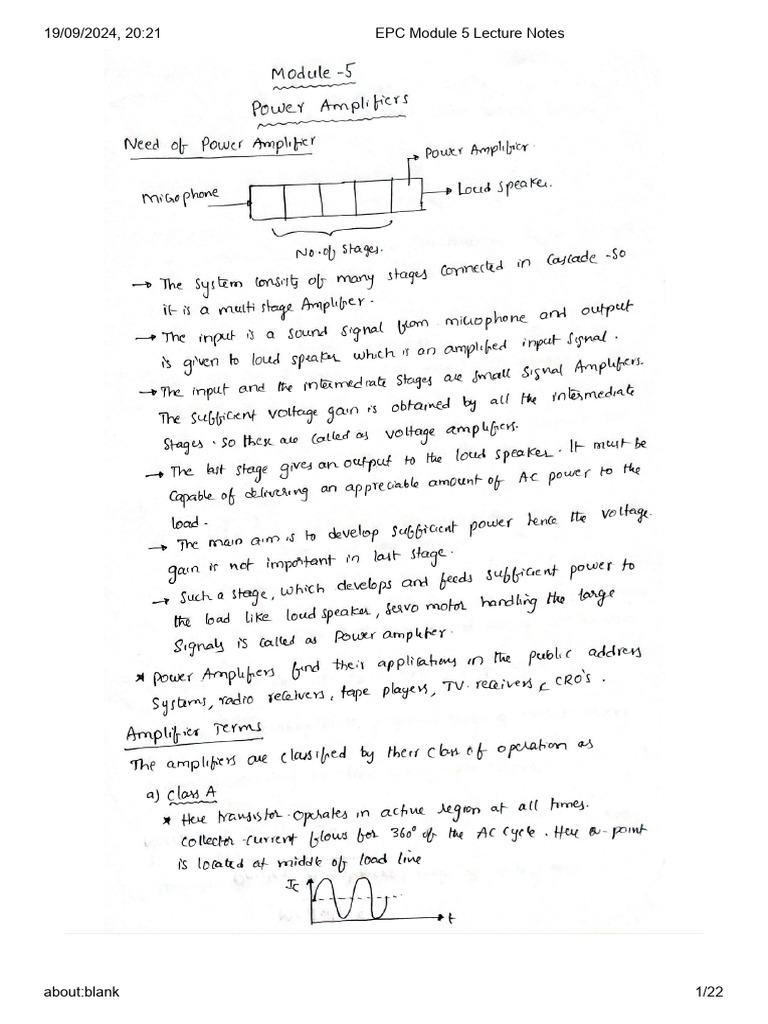 19/09/2024, 20:21 EPC Module 5 Lecture Notes
Module -5
Power Amplifiers
Need of Power Amplifier
Power Amplifier.
Microphone
Loud speaker.
No. of stages.
→ The system consists of many stages connected in cascade -so
it is a multi stage Amplifier.
→ The input is a sound signal from microphone and output
is given to loud speaker which is an amplified input signal.
→ The input and the intermediate stages are small signal Amplifiers.
The sufficient voltage gain is obtained by all the intermediate
stages. so these are called as voltage amplifiers.
→ The last stage gives an output to the loud speaker. It must be
capable of delivering an appreciable amount of AC power to the
load.
→ The main aim is to develop sufficient power hence the voltage
gain is not important in last stage.
→ Such a stage, which develops and feeds sufficient power to
the load like loud speaker, servo motor handling the large
signals is called as Power amplifier.
* Power Amplifiers find their applications in the public address
systems, radio receivers, tape players, TV. receivers & CRO's.
Amplifier Terms
The amplifiers are classified by their class of operation as
a) Class A
* Here transistor operates in active region at all times.
collector current flows for 360° of the AC cycle. Here Q-point
is located at middle of load line
Ic
t
about:blank 1/22